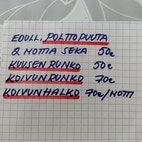 EDULL. POLTTOPUUTA
& NOTTIA SEKA 50€
KUUSEN RUNKO 50€
KOIVUN RUNKO 70€
KOIVUNHALKO 70€/MOTTI